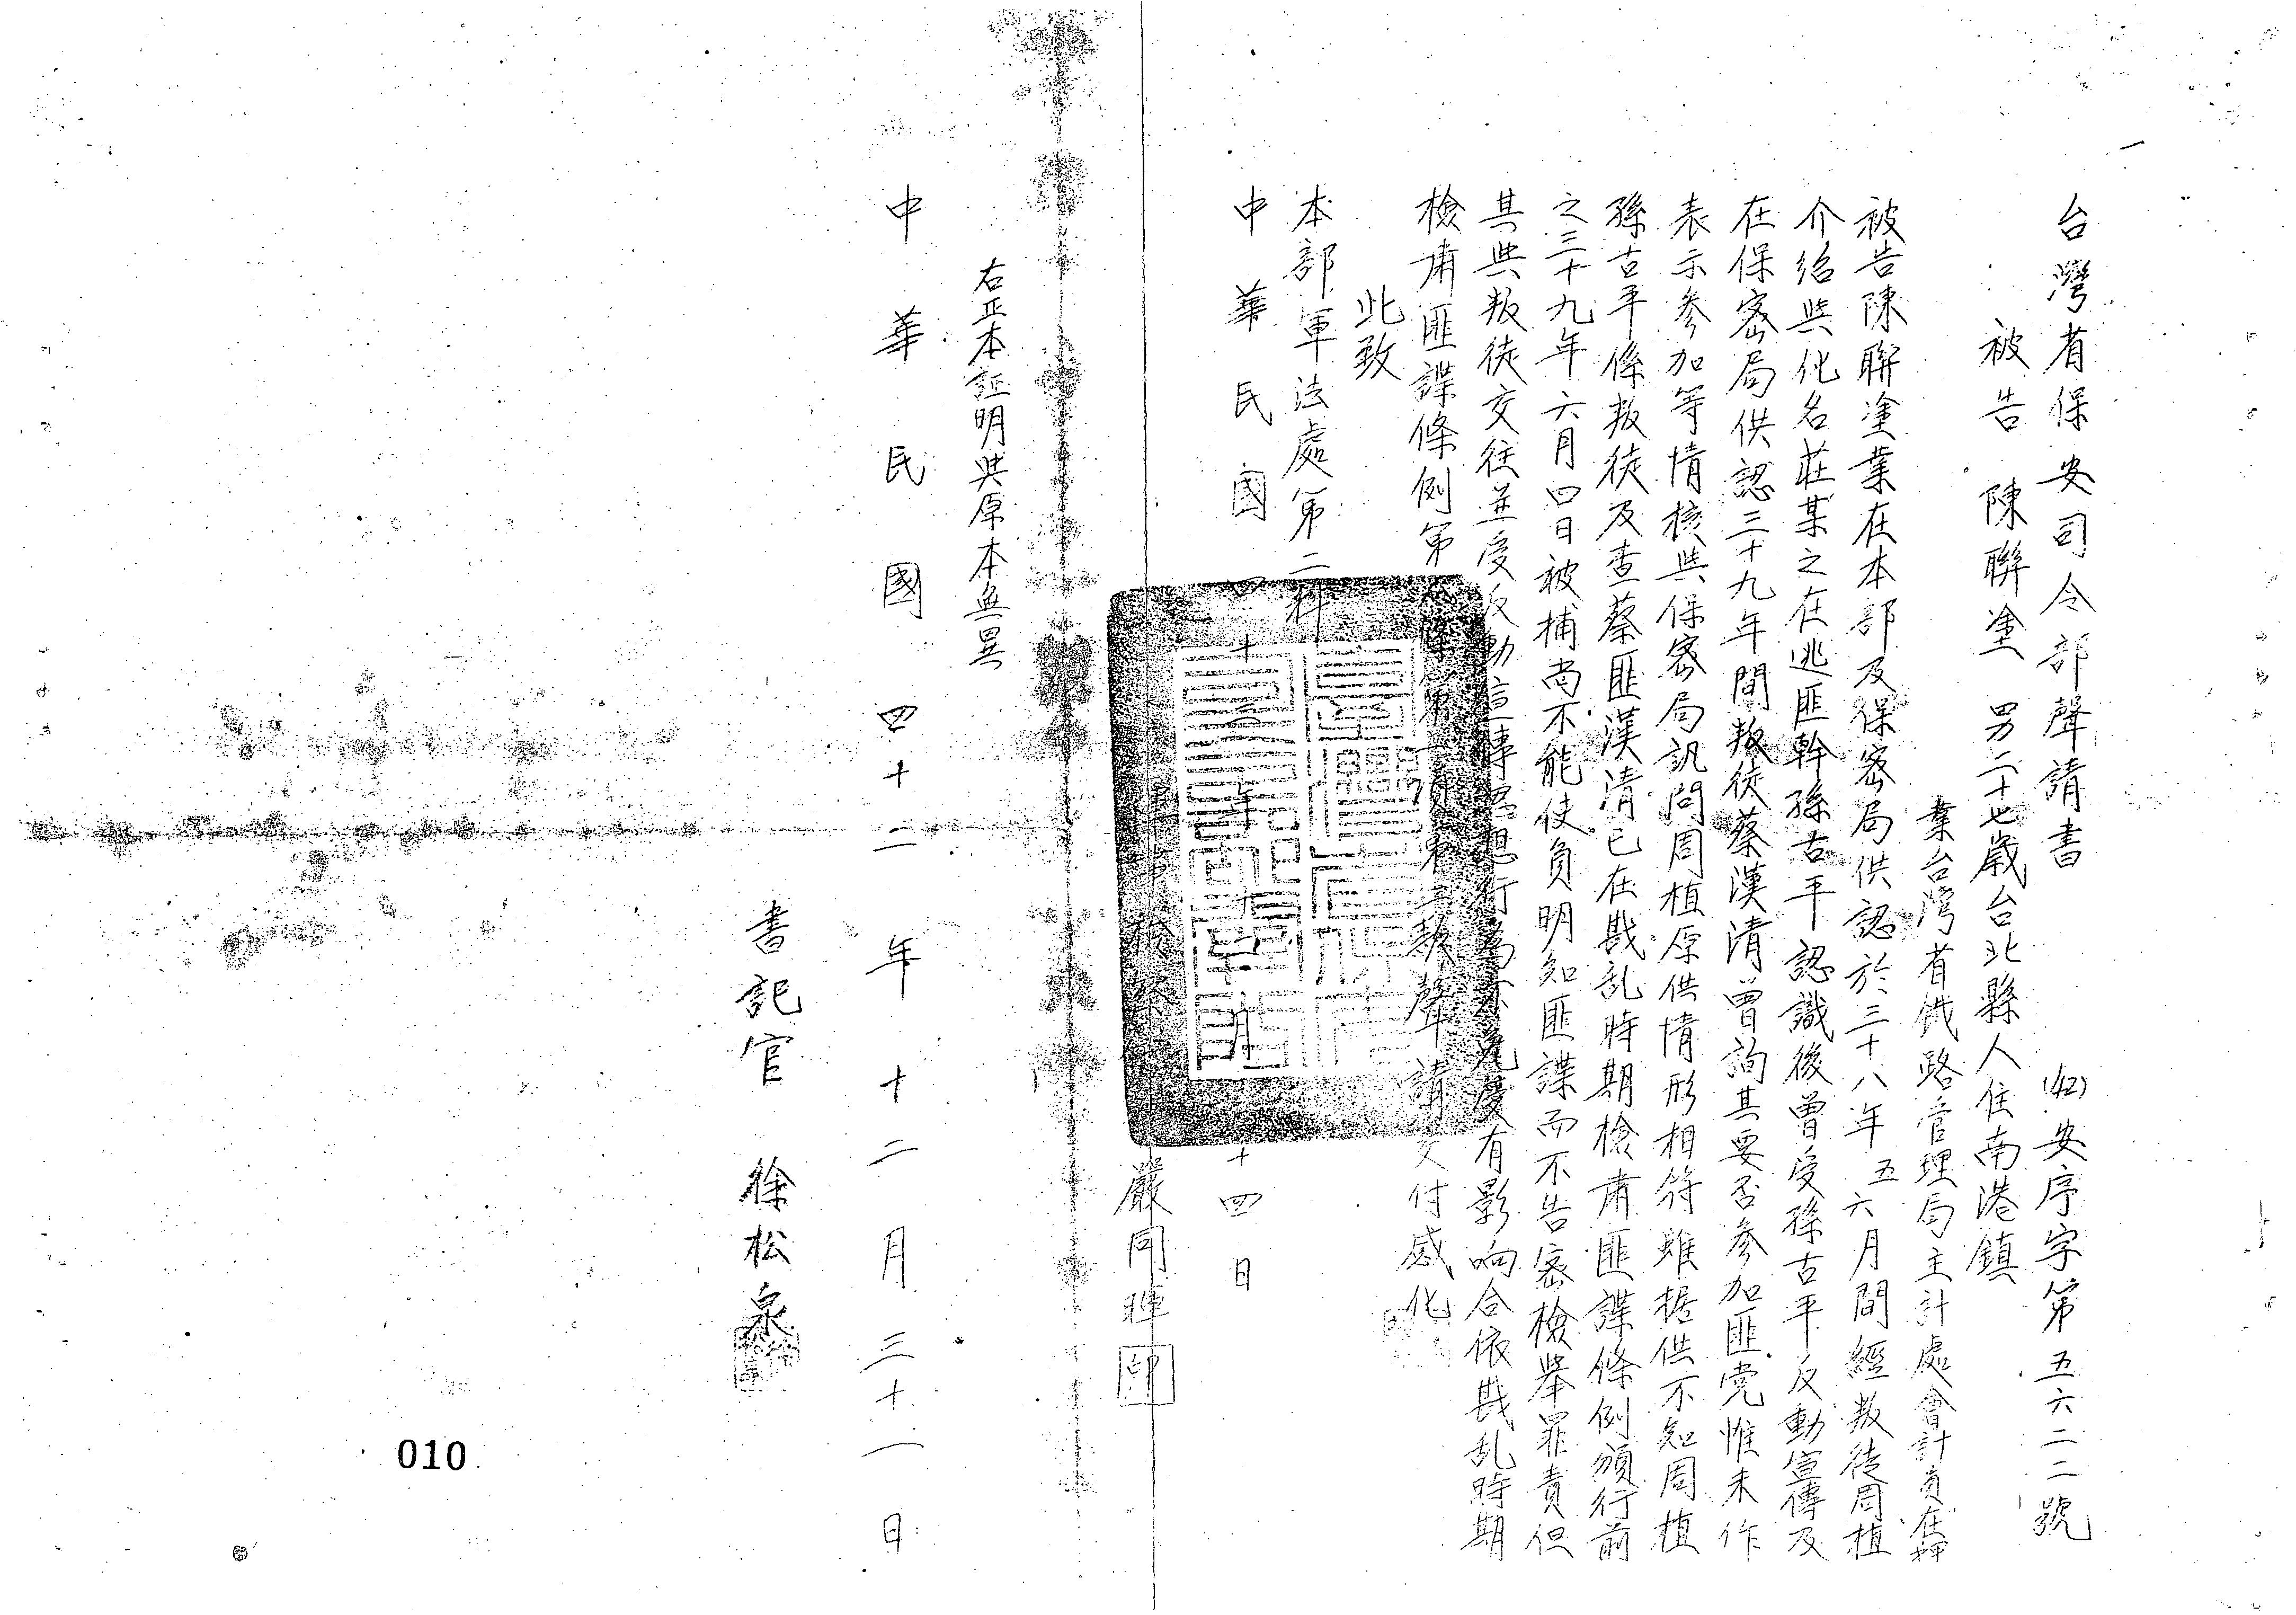 台灣省保安司令部聲請書 (42)安序字第五六二二號
被告 陳聯塗 男二十七歲台北縣人住南港鎮
業台灣省鉄路管理局主計處會計員在押
被告陳聯塗業在本部及保密局供認於三十八年五六月間經叛徒周植
介紹與化名莊某之在逃匪幹孫古平認識後曾受孫古平反動宣傳及
在保密局供認三十九年間叛徒蔡漢清曾詢其要否參加匪党惟未作
表示參加等情核與保密局訊問周植原供情形相符雖据供不知周植
孫古平係叛徒及查蔡匪漢清已在戡乱時期檢肅匪諜條例頒行前
之三十九年六月四日被捕尚不能使負明知匪諜而不告密檢舉罪責但
其與叛徒交往並受反動宣傳思想行為不免受有影响合依戡乱時期
檢肅匪諜條例第 條第 聲請交付感化
此致
本部軍法處第二科
中華民國四十二年十二月 十四日
嚴同輝 印
右正本証明與原本無異
中華民國四十二年十二月三十一日
書記官 徐松泉
010